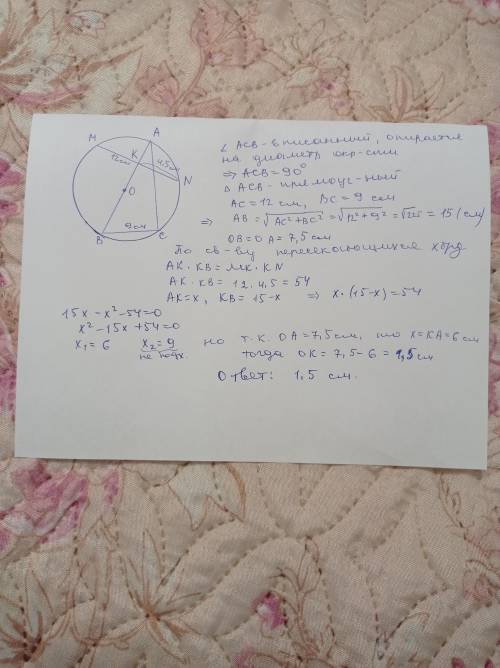 M
A
K
12см
4,5см
N
O
9см
B
C
∠ ACB - вписанный, опирается
на диаметр окр-сти
⇒ ACB = 90°
△ ACB - прямоуг-ный
AC = 12 см, BC = 9 см
⇒ AB = √AC² + BC² = √12² + 9² = √225 = 15 (см)
OB = OA = 7,5 см
По св-ву пересекающихся хорд
AK · KB = MK · KN
AK · KB = 12 · 4,5 = 54
AK = x, KB = 15 - x ⇒ x · (15 - x) = 54
15x - x² - 54 = 0
x² - 15x + 54 = 0
x₁ = 6 x₂ = 9 но т.к. OA = 7,5 см, то x = KA = 6 см
не подх. тогда OK = 7,5 - 6 = 1,5 см
Ответ: 1,5 см.